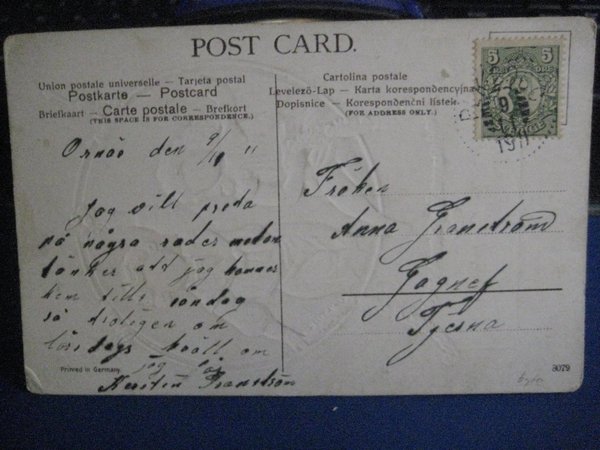 POST CARD.
Union postale universelle – Tarjeta postal
Postkarte – Postcard
Briefkaart – Carte postale – Brefkort
(THIS SPACE IS FOR CORRESPONDENCE.)
Cartolina postale
Levelező-Lap – Karta korespondencyjna
Dopisnice – Korespondenční lístek.
(FOR ADDRESS ONLY.)
5 5
1911
Ornäs den 9/10 11
Jag vill
på några rader
tänker att jag kommer
hem till söndag
så troligen om
lördags kväll om
jag
Kersten Granström
Fröken
Anna Granström
Gagnef
Tjerna
Printed in Germany.
3079